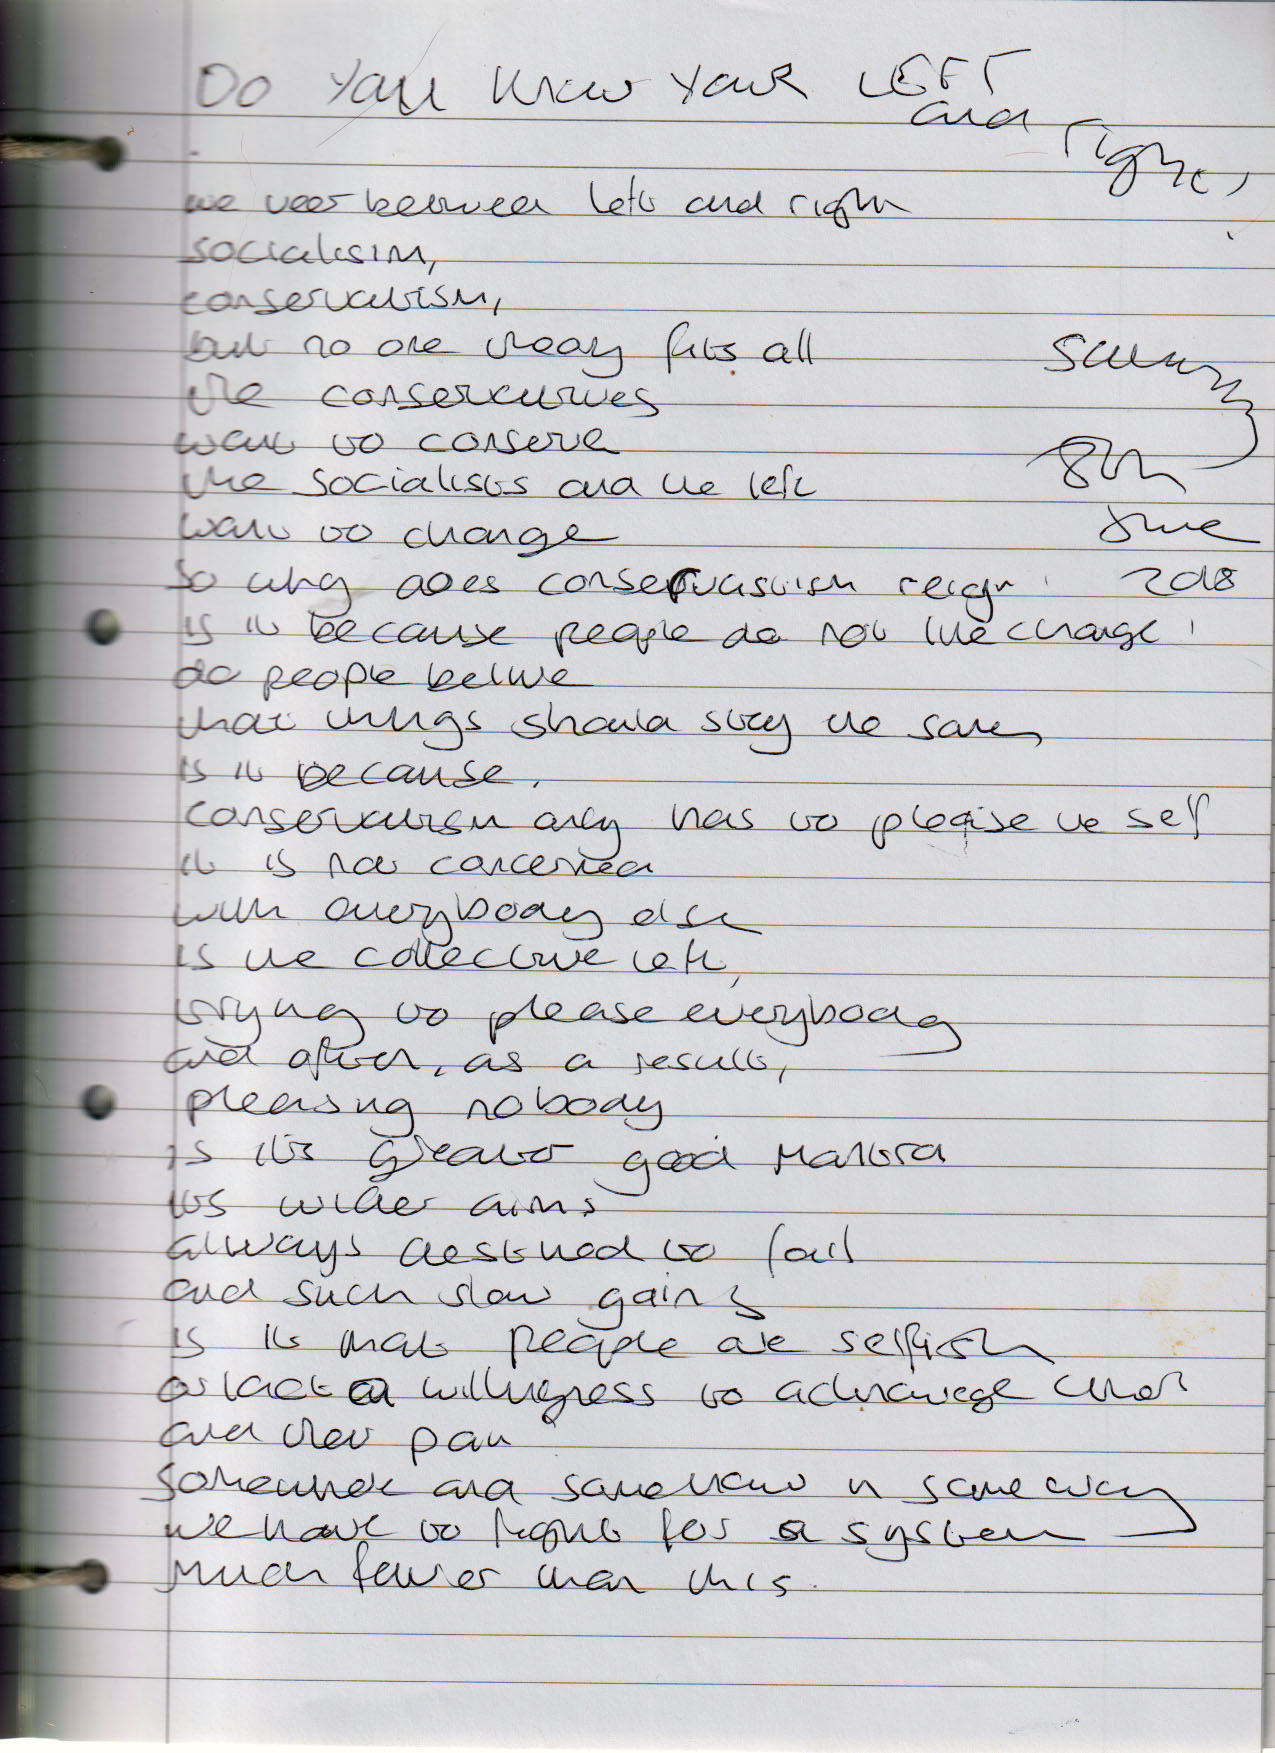 Do You Know Your LEFT
and right,
we veer between left and right
socialisim,
conservatism,
but no one theory fits all
the conservatives
want to conserve
the socialists and the left
want to change
so why does conservatism reign
is it because people do not like change
do people belive
that things should stay the same
is it because.
conservatism only has to please the self
it is not concerned
with everybody else
is the collective left,
trying to please everybody
and often, as a result,
pleasing nobody
is its greater good mantra
its wider aims
always destined to fail
and such slow gains
is it that people are selfish
or lack a willingness to acknowlege
and their pain
somewhere and somehow in some way
we have to fight for a system
much fairer than this.
8th
June
2018